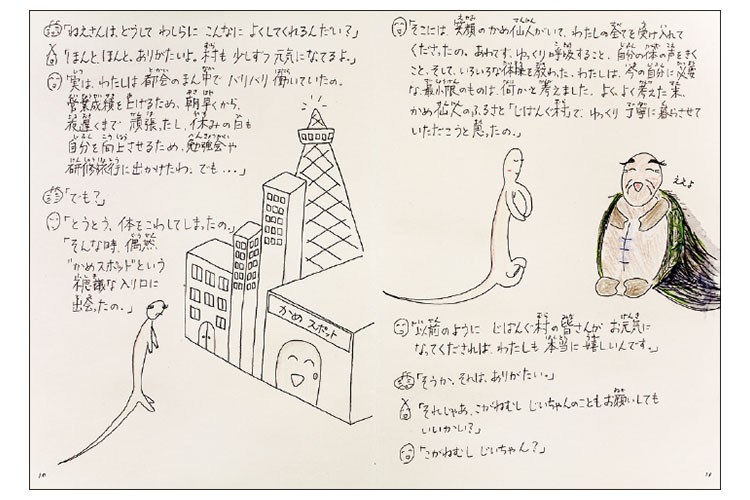 「ねえさんは、どうして わしらに こんなに よくしてくれるんだい？」
「ほんと、ほんと。ありがたいよ。村も 少しずつ 元気になてるよ。」
「実は、わたしは 都会のまん中で バリバリ 働いていたの。
営業成績を上げるため、朝早くから、
夜遅くまで 頑張ったし、休みの日も
自分を向上させるため、勉強会や
研修旅行に出かけたわ。でも...」
「でも？」
「とうとう、体をこわしてしまったの。」
「そんな時、偶然、
"かめスポット"という
不思議な入り口に
出会ったの。」
かめ スポット
10
「そこには、笑顔の かめ仙人がいて、わたしの全てを受け入れて
くださったの。あわてず、ゆっくり呼吸すること、自分の体の声をきく
こと、そして、いろいろな体操を教わった。わたしは、今の自分に必要
な最小限のものは、何かを 考えました。よく、よく考えた末、
かめ仙人のふるさと「じはんぐ村」で、ゆっくり 丁寧に暮らさせて
いただこうと思ったの。」
ええよ
「以前のように じはんぐ村の皆さんが お元気に
なってくだされば、わたしも 本当に嬉しいんです。」
「そうか、それは、ありがたい。」
「それじゃあ、こがねむし じいちゃんのこともお願いしても
いいかい？」
「こがねむし じいちゃん？」
11